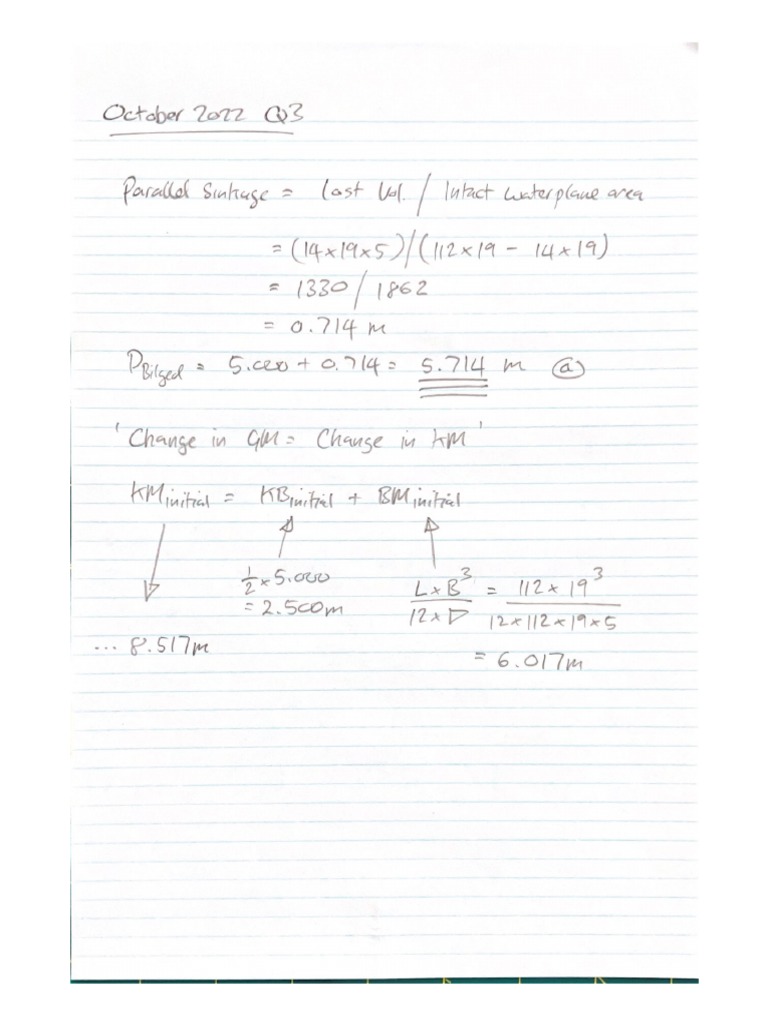 October 2022 Q3
Parallel Sinkage = Lost Vol. / Intact waterplane area
= (14x19x5)/(112x19 - 14x19)
= 1330 / 1862
= 0.714 m
D Bilged = 5.000 + 0.714 = 5.714 m (a)
'Change in GM = Change in KM'
KM initial = KB initial + BM initial
1/2 x 5.000
= 2.500m
L x B³ / 12 x ∇ = 112 x 19³ / 12 x 112 x 19 x 5
... 8.517m
= 6.017m